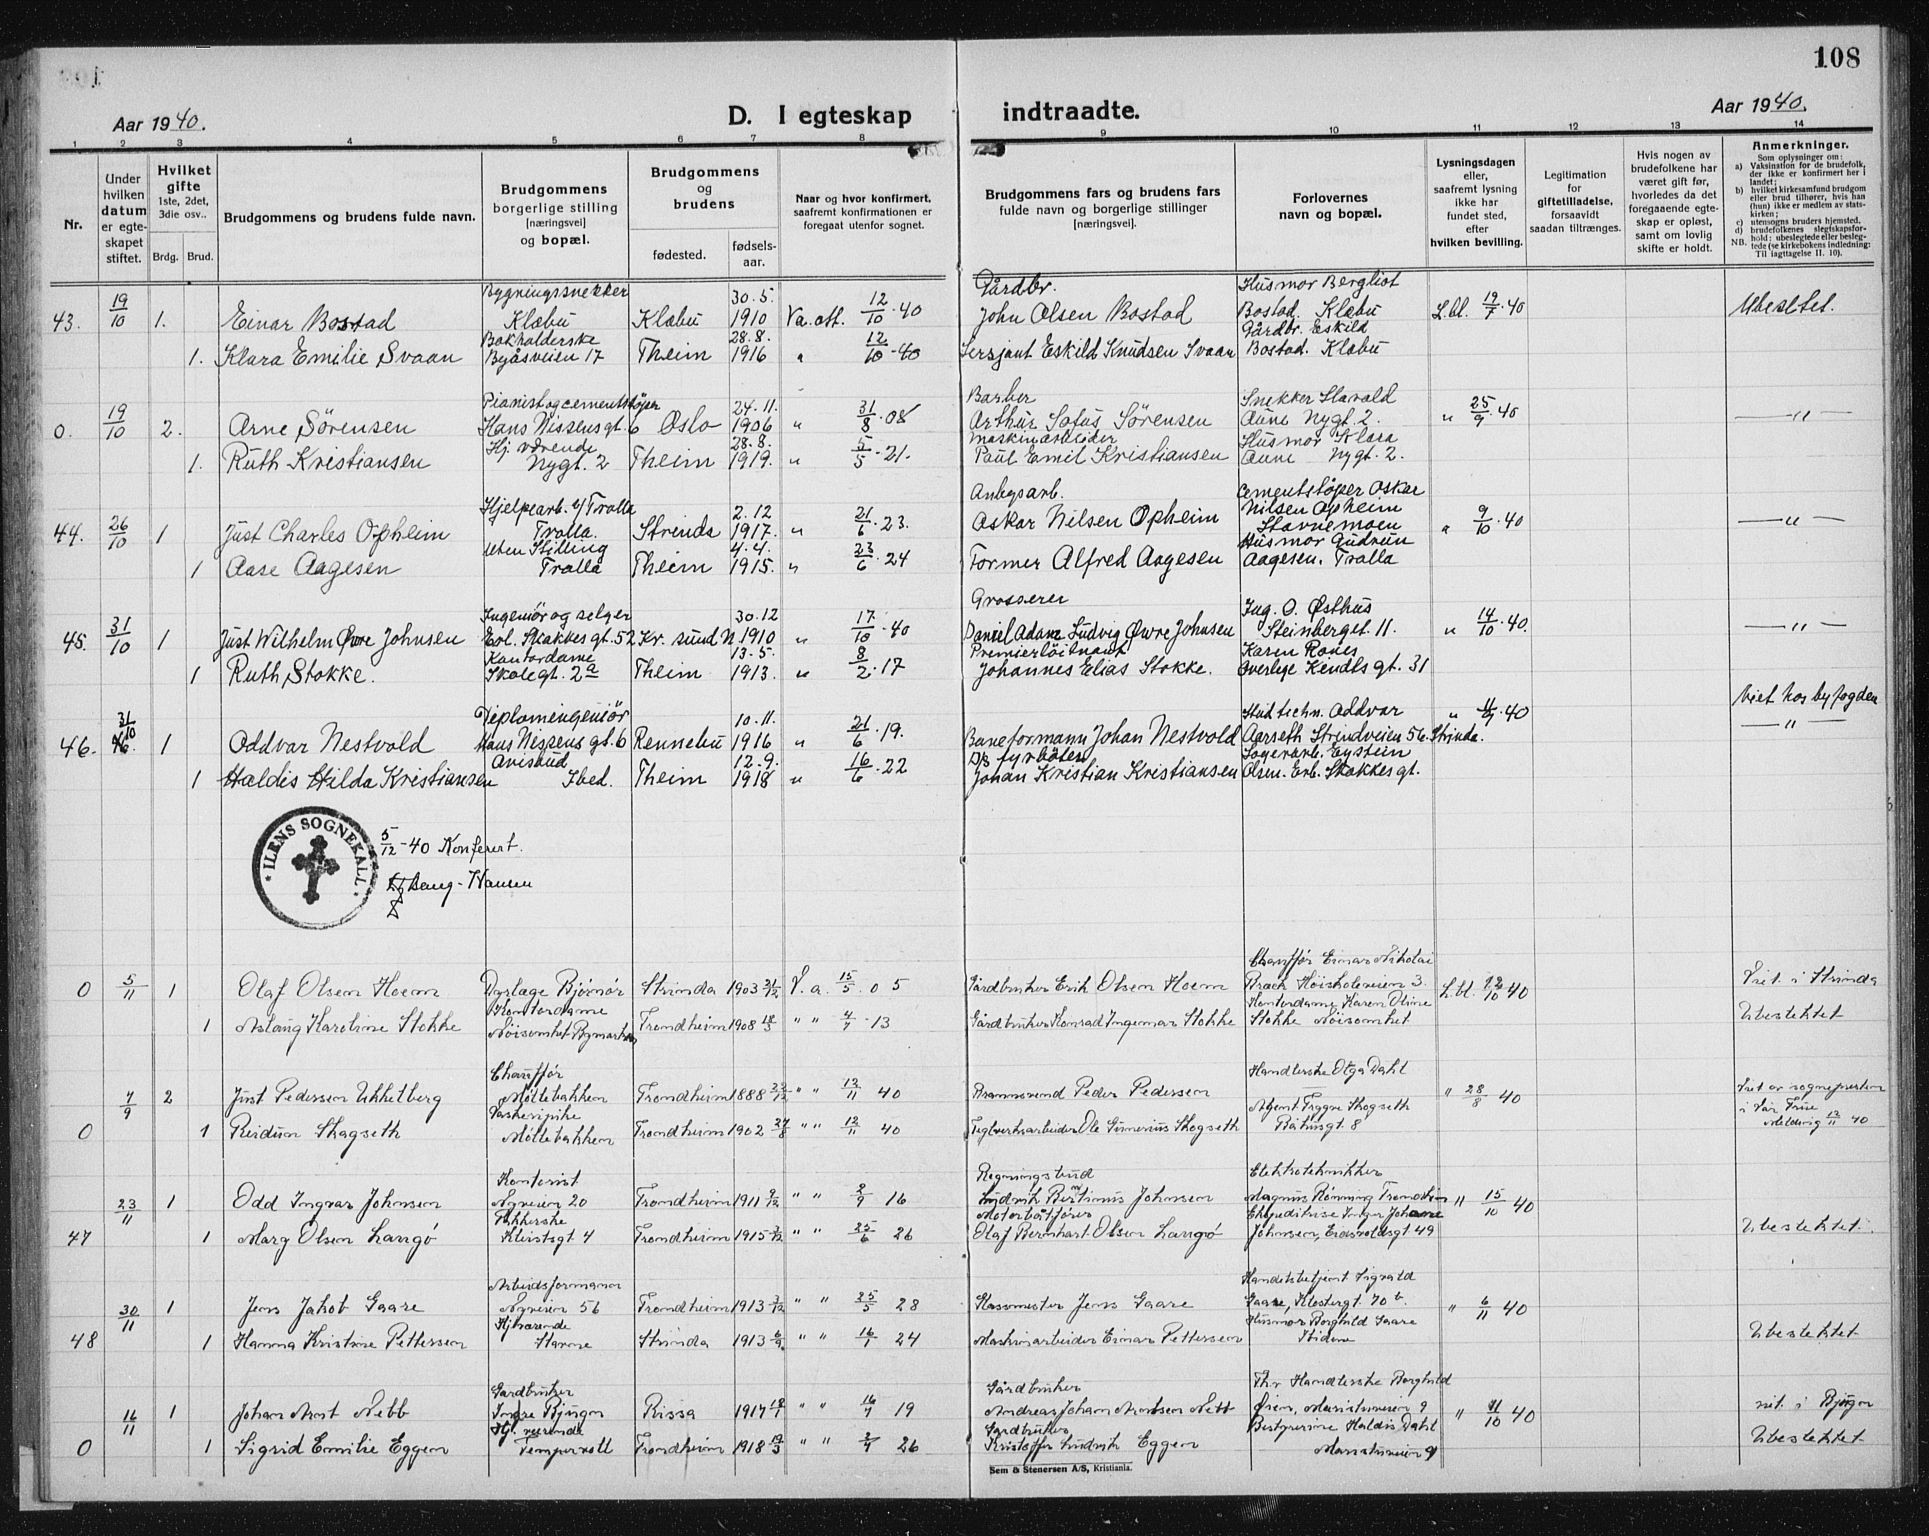 108
Aar 1940.
D. I egteskap indtraadte.
Aar 1940.
1 2 3 4 5 6 7 8 9 10 11 12 13 14
Nr.
Under hvilken datum er egteskapet stiftet.
Hvilket gifte 1ste, 2det, 3die osv..
Brdg. Brud.
Brudgommens og brudens fulde navn.
Brudgommens borgerlige stilling [næringsvei] og bopæl.
Brudgommens og brudens
fødested.
fødsels-aar.
Naar og hvor konfirmert, saafremt konfirmationen er foregaat utenfor sognet.
Brudgommens fars og brudens fars fulde navn og borgerlige stillinger [næringsvei].
Forlovernes navn og bopæl.
Lysningsdagen eller, saafremt lysning ikke har fundet sted, efter hvilken bevilling.
Legitimation for giftetilladelse, forsaavidt saadan tiltrænges.
Hvis nogen av brudefolkene har været gift før, hvorledes da det foregaaende egteskap er opløst, samt om lovlig skifte er holdt.
Anmerkninger.
Som oplysninger om:
a) Vaksination for de brudefolk, der ikke er konfirmert her i landet;
b) hvilket kirkesamfund brudgom eller brud tilhører, hvis han (hun) ikke er medlem av statskirken;
c) utensogns bruders hjemsted.
d) brudefolkenes slegtskapsforhold: ubeslegtede eller beslegtede (se kirkebokens indledning:
NB. Til iagttagelse II. 10).
Bygningssnekker 30.5. Gårdbr. Husmor Bergliot
43. 19/10 1. Einar Bostad Klæbu Klæbu 1910 Va. att. 12/10·40 John Olsen Bostad Bostad. Klæbu L.bl. 19/7·40 Ubesltet.
Bokholderske 28.8. Gårdbr. Eskild
1. Klara Emilie Svaan Byåsveien 17 Theim 1916 " 12/10-40 Sersjant Eskild Knudsen Svaan Bostad. Klæbu
Pianist og cementstøper 24.11. Barber Snekker Harald
0. 19/10 2. Arne Sörensen Hans Nissens gt. 6 Oslo 1906 " 31/8·08 Arthur Sofus Sörensen Aune Nygt. 2. " 25/9·40 — " —
Hj. værende 28.8. Maskinarbeider Husmor Klara
1. Ruth Kristiansen Nygt. 2 Theim 1919. " 5/5·21. Paul Emil Kristiansen Aune Nygt. 2.
Hjelpearb. v/ Trolla 2.12 Anlegsarb. Cementstøper Oskar
44. 26/10 1 Just Charles Opheim Trolla. Strinda 1917. " 21/6·23. Oskar Nilsen Opheim Nilsen Opheim Stavnemoen " 9/10·40 — " —
Uten Stilling 4.4. Husmor Gudrun
1 Aase Aagesen Trolla Theim 1915. " 23/6·24 Former Alfred Aagesen Aagesen. Trolla
Ingeniør og selger 30.12 Grosserer Ing. O. Østhus
45. 31/10 1 Just Wilhelm Øwre Johnsen Erl. Skakkes gt. 52 Kr. sund N 1910 " 17/10·40 Daniel Adam Ludvig Øwre Johnsen Steinberget 11. " 14/10·40. — " —
Kontordame 13.5. Premierløitnant Karen Rones
1 Ruth Stokke. Skolegt. 2a Theim 1913. " 8/2·17 Johannes Elias Stokke. Overlege Kendls gt. 31
Viet hos byfogden
Diplomingeniør 10.11. Stud techn. Oddvar
46. 31/10 1 Oddvar Nestvold Hans Nissens gt. 6 Rennebu 1916 " 21/6·19. Baneformann Johan Nestvold Aarseth Strindveien 56. Strinda. " 11/9·40 — " —
Avisbud 12.9. D/S fyrböter Lagerarb. Eystein
1 Haldis Hilda Kristiansen Ibed. Theim 1918 " 16/6·22 Johan Kristian Kristiansen Olsen. Erl. Skakkes gt.
ILENS SOGNEKALL
5/12-40 Konferert.
Bang-Hansen
Chauffør Einar Nikolai
0 5/11 1 Olaf Olsen Hoem Dyrlæge Bjørnør Strinda 1903 31/12 V. a. 15/5·05 Gårdbruker Erik Olsen Hoem Brack Høiskoleveien 3. L.bl. 12/10 40 Viet i Strinda
Kontordame Kontordame Karen Oline
1 Aslaug Karoline Stokke Nöisomhet Bymarken Trondheim 1908 18/3 " " 4/7-13 Gårdbruker Konrad Ingemar Stokke Stokke Nöisomhet Ubeslektet
Chauffør Handlerske Olga Dahl
7/9 2 Just Pedersen Ukkelberg Møllebakken Trondheim 1888 23/12 " " 12/11 40 Brannsvend Peder Pedersen " 28/8 40 Viet av sognepresten i Vår Frue
Vaskeripike Agent Trygve Skogseth
0 1 Reidun Skogseth Møllebakken Trondheim 1902 27/8 " " 12/11 40 Teglverksarbeider Ole Gunerius Skogseth Bakusgt 8 Melding 12/11 40
Kontorist Regningsbud Elektrotekniker
23/11 1 Odd Ingvar Johnsen Nyveien 20 Trondheim 1911 9/12 " " 2/9 16 Ludvik Bertinius Johnsen Magnus Rönning Trondheim " 15/10 40
Pakkerske Motorbåtfører Ekspeditrise Inger Johanne
47 1 Marg Olsen Langö Kleistsgt 4 Trondheim 1915 3/12 " " 25/6 26 Olaf Bernhart Olsen Langö Johnsen, Eidsvoldsgt 49 Ubeslektet.
Arbeidsformann Handelsbetjent Sigvald
30/11 1 Jens Jakob Gaare Nyveien 56 Trondheim 1913 3/12 " " 25/5 28 Glassmester Jens Gaare Gaare, Klostergt. 70 b. " 6/11 40
Hj.værende Husmor Borghild Gaare
48 1 Hanna Kristine Pettersen Stavne Strinda 1913 6/9. " " 16/1 24 Maskinarbeider Einar Pettersen Ibidem Ubeslektet
Gardbruker Gårdbruker Thv Handlerske Borghild
16/11 1 Johan Arnt Nebb Indre Bjugn Rissa 1917 18/1 " " 16/7 19 Andreas Johan Arntsen Nebb Öien, Mariusveien 9 " 11/10 40 viet i Bjugn
Hj. værende Gardbruker Bestyrerinne Haldis Dahl
0 1 Sigrid Emilie Eggen Tempervoll Trondheim 1918 19/3 " " 2/7 26 Kristoffer Ludvik Eggen Mariusveien 9 Ubeslektet
Sem & Stenersen A/S, Kristiania.